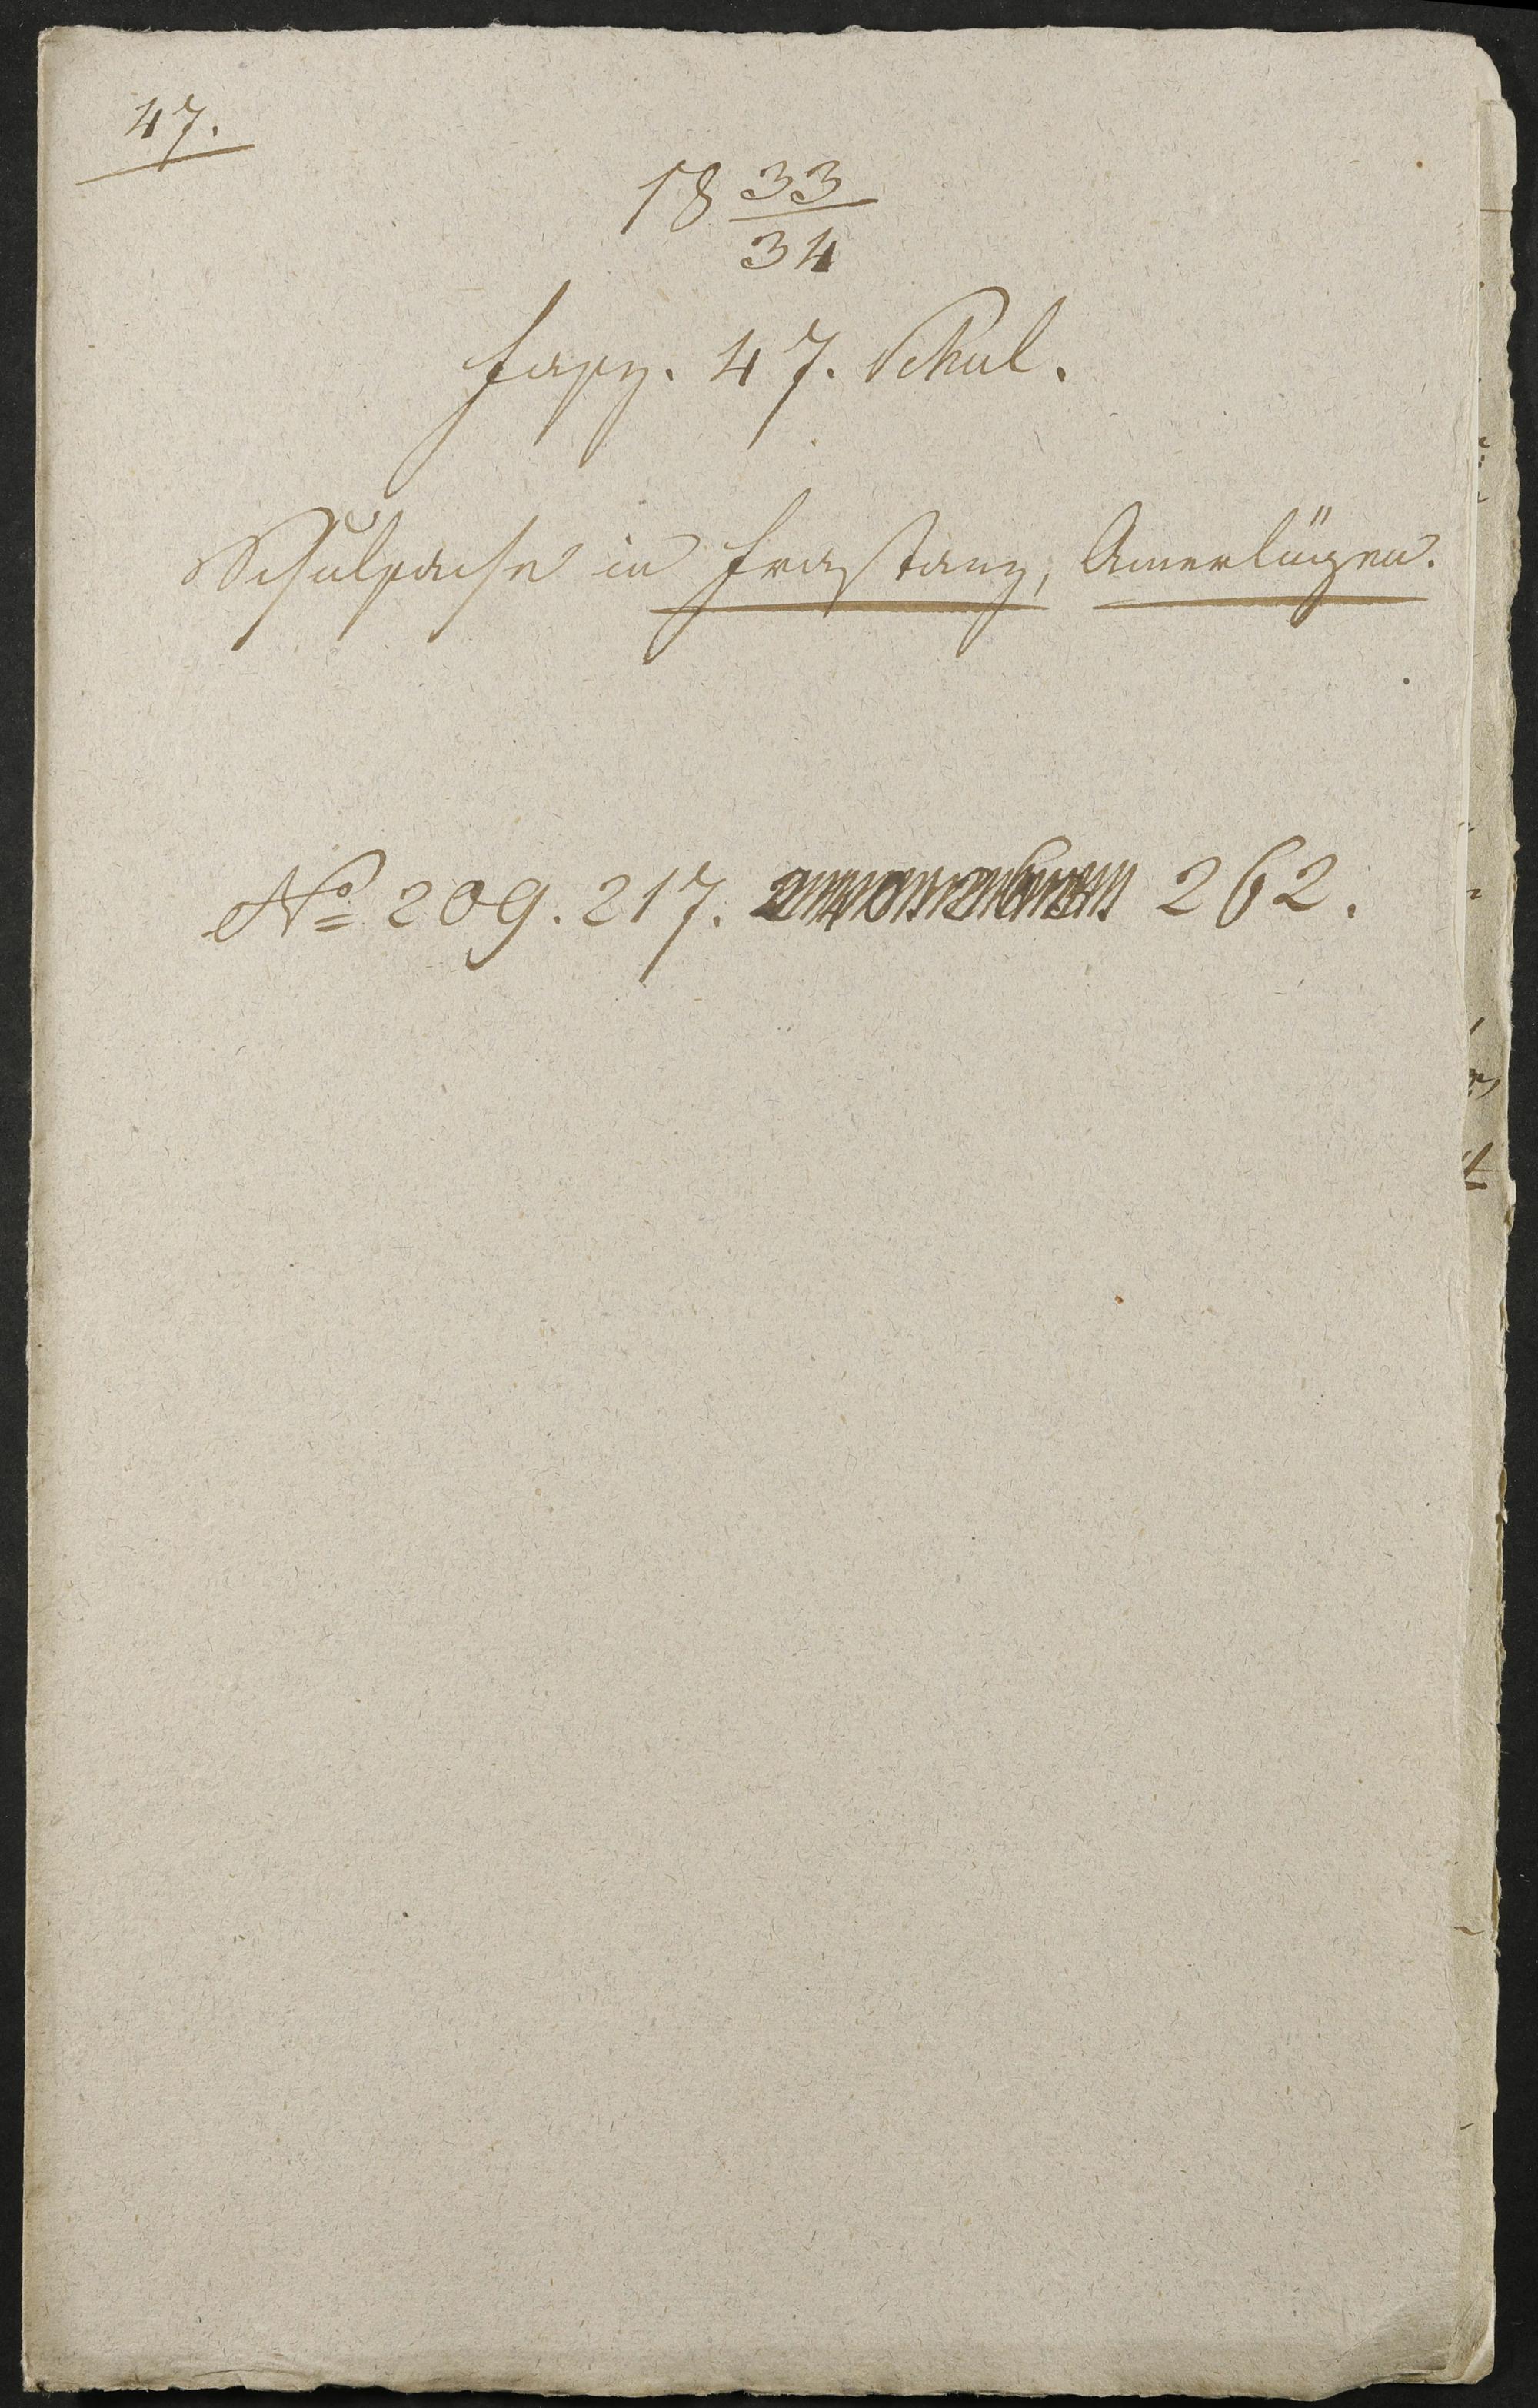 47.
18 33/34
Fasz. 47. Schul.
Schulsache in Frastanz, Amerlügen.
No 209. 217. 262.